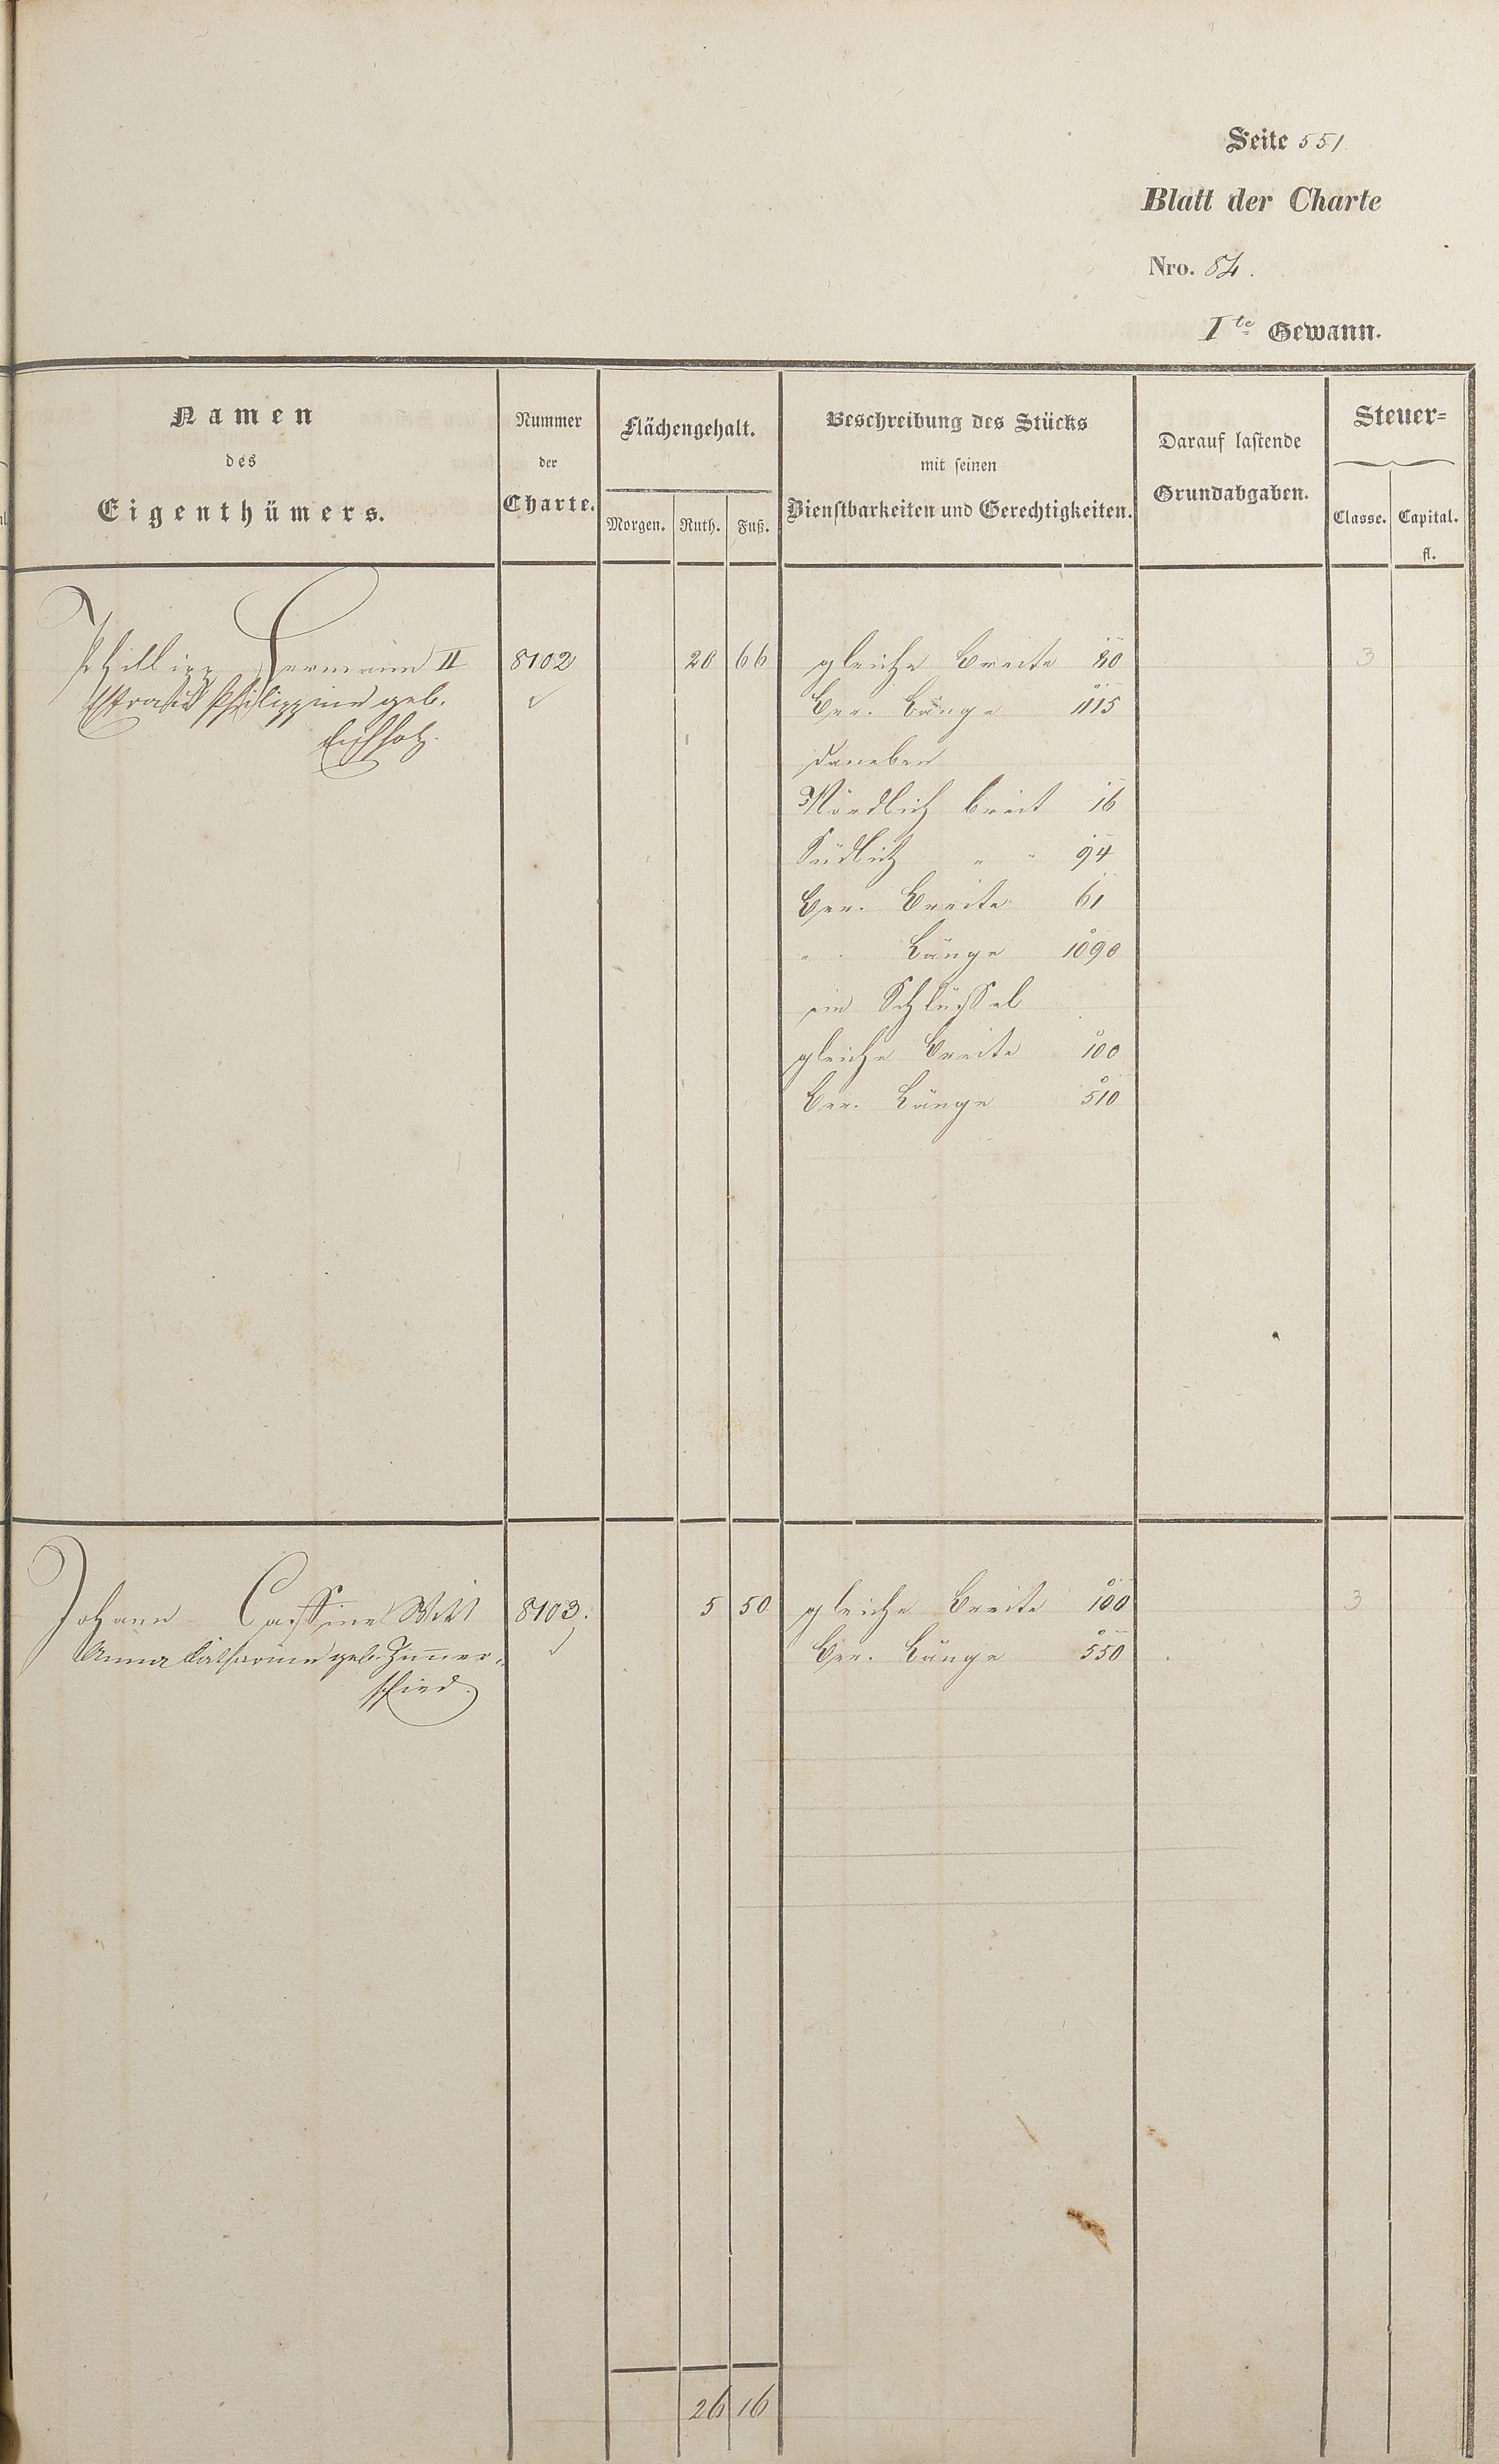 Seite 551
Blatt der Charte
Nro. 84.
Ite Gewann.
Namen
des
Eigenthümers.
Nummer
der
Charte.
Flächengehalt.
Morgen. Ruth. Fuß.
Beschreibung des Stücks
mit seinen
Dienstbarkeiten und Gerechtigkeiten.
Darauf lastende
Grundabgaben.
Steuer=
Classe. Capital.
fl.
Phillipp Hermann II 8102 20 66 gleiche Breite 80 3
Philippine geb. Ber. Länge 1115
Eichholz.
daneben
Nördlich breit 16
Südlich " " 94
Ber. Breite 61
" Länge 1090
ein Schlüssel
gleiche Breite 100
Ber. Länge 510
Johann Witt 8103. 5 50 gleiche Breite 100 3
Anna Katharine geb. Zimmer= Ber. Länge 550
schied.
26 16